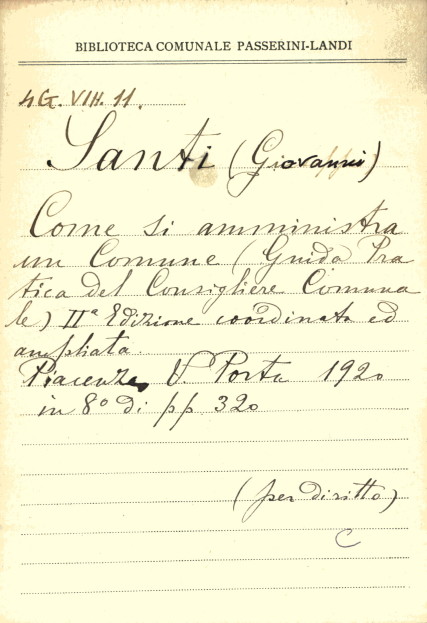 BIBLIOTECA COMUNALE PASSERINI-LANDI
4G. VIII. 11.
Santi (Giovanni)
Come si amministra
un Comune (Guida Pra
tica del Consigliere Comuna
le) IIª Edizione coordinata ed
ampliata.
Piacenza, V. Porta 1920
in 8º di pp 320
(per diritto)
C